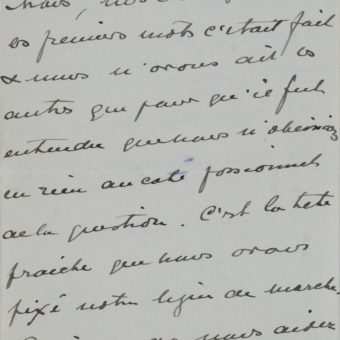 Mais,
les premiers mots c'était fait
& nous n'avons dit les
autres que pour qu'il fut
entendre que nous n'obéissions
en rien au coté passionnel
de la question. C'est la tête
fraiche que nous avons
fixé notre ligne de marche.
nous aidez